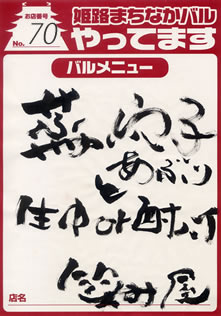 お店番号
No. 70
姫路まちなかバル
やってます
バルメニュー
蒸し穴子
あぶり
と
生中or酎ハイ
屋
店名